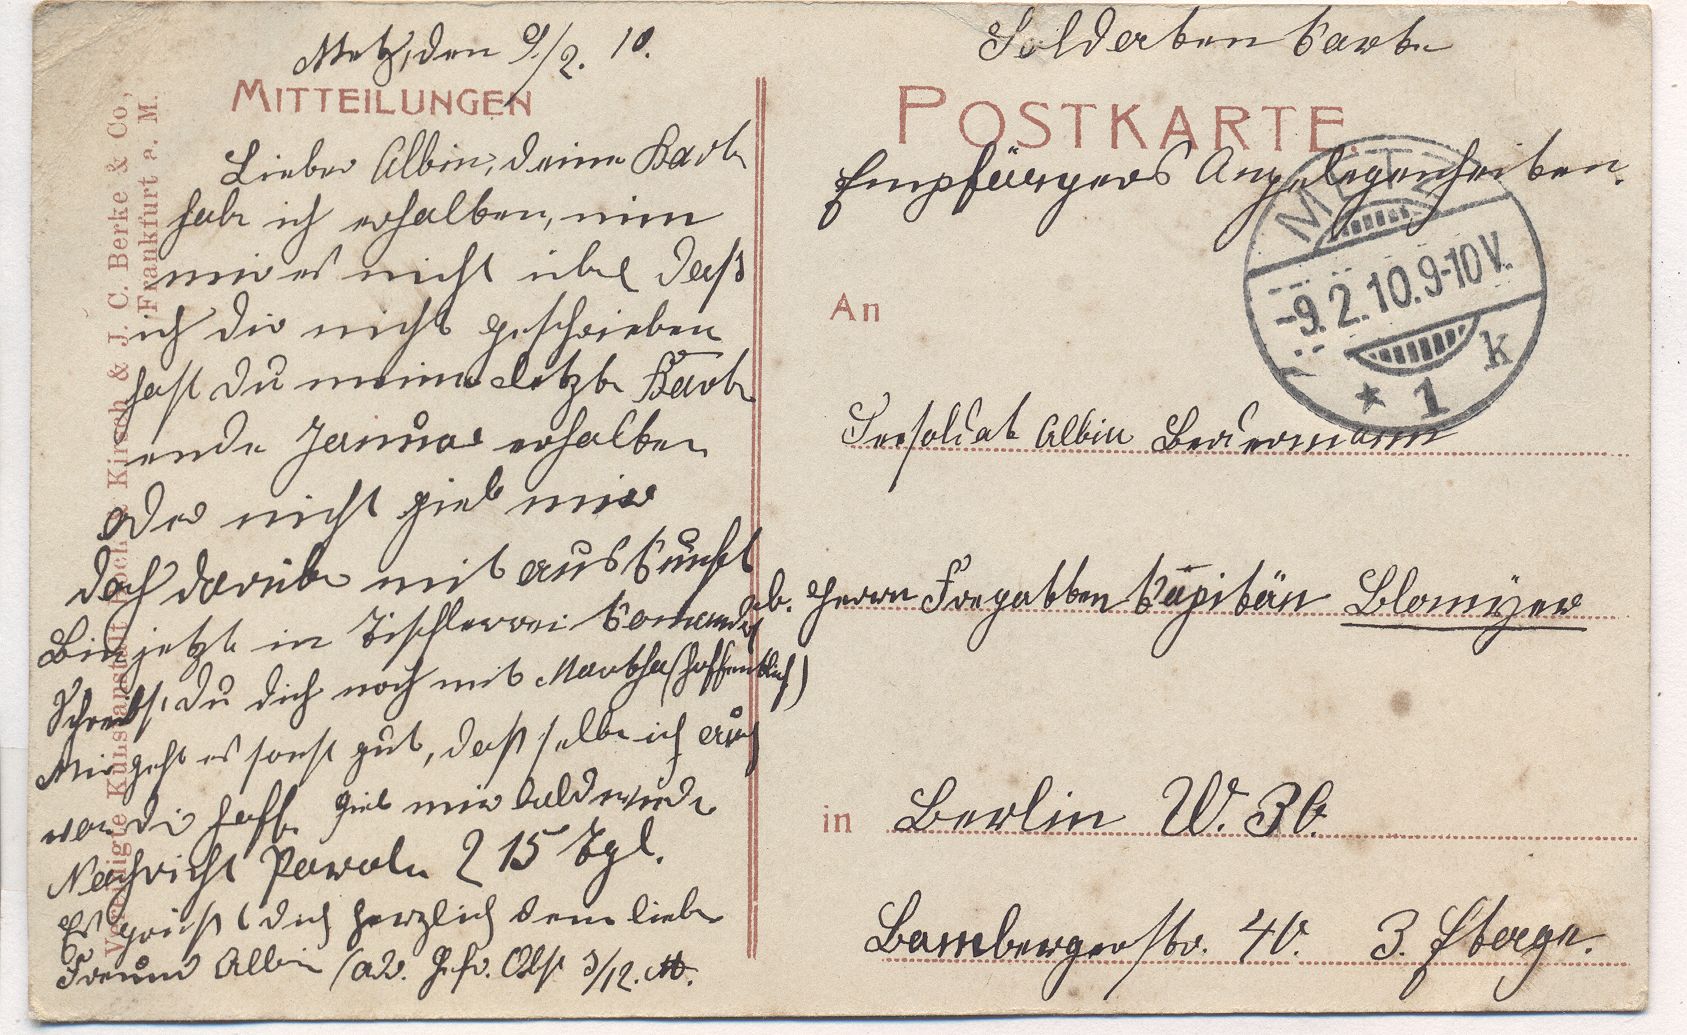 Metz, den 9/2. 10.
MITTEILUNGEN
Lieber Albin, deine Karte
habe ich erhalten, nim
mir es nicht übel daß
ich dir nicht geschrieben
hast du meine letzte Karte
ende Januar erhalten
oder nicht gieb mir
doch darüber mit auskunft
Bin jetzt in Tischlerrei
Schreibst du dich noch mit Martha (hoffentlich)
Mir geht es sonst gut, daß selbe ich auch
von dir hoffe gieb mir bald wieder
Nachricht Parole 215 Tgl.
Es grüßt dich herzlich dein lieber
Freund Albin
Vereinigte Kunstanstalt Kirsch & J. C. Berke & Co.,
Frankfurt a. M.
Soldaten Karte
POSTKARTE.
Empfängers Angelegenheiten.
METZ
-9.2.10.9-10V.
* 1 k
An
Seesoldat Albin Biedermann
b. Herrn Fregatten Kapitän Blomeyer
in Berlin W. 30.
Bambergerstr. 40. 3. Etage.